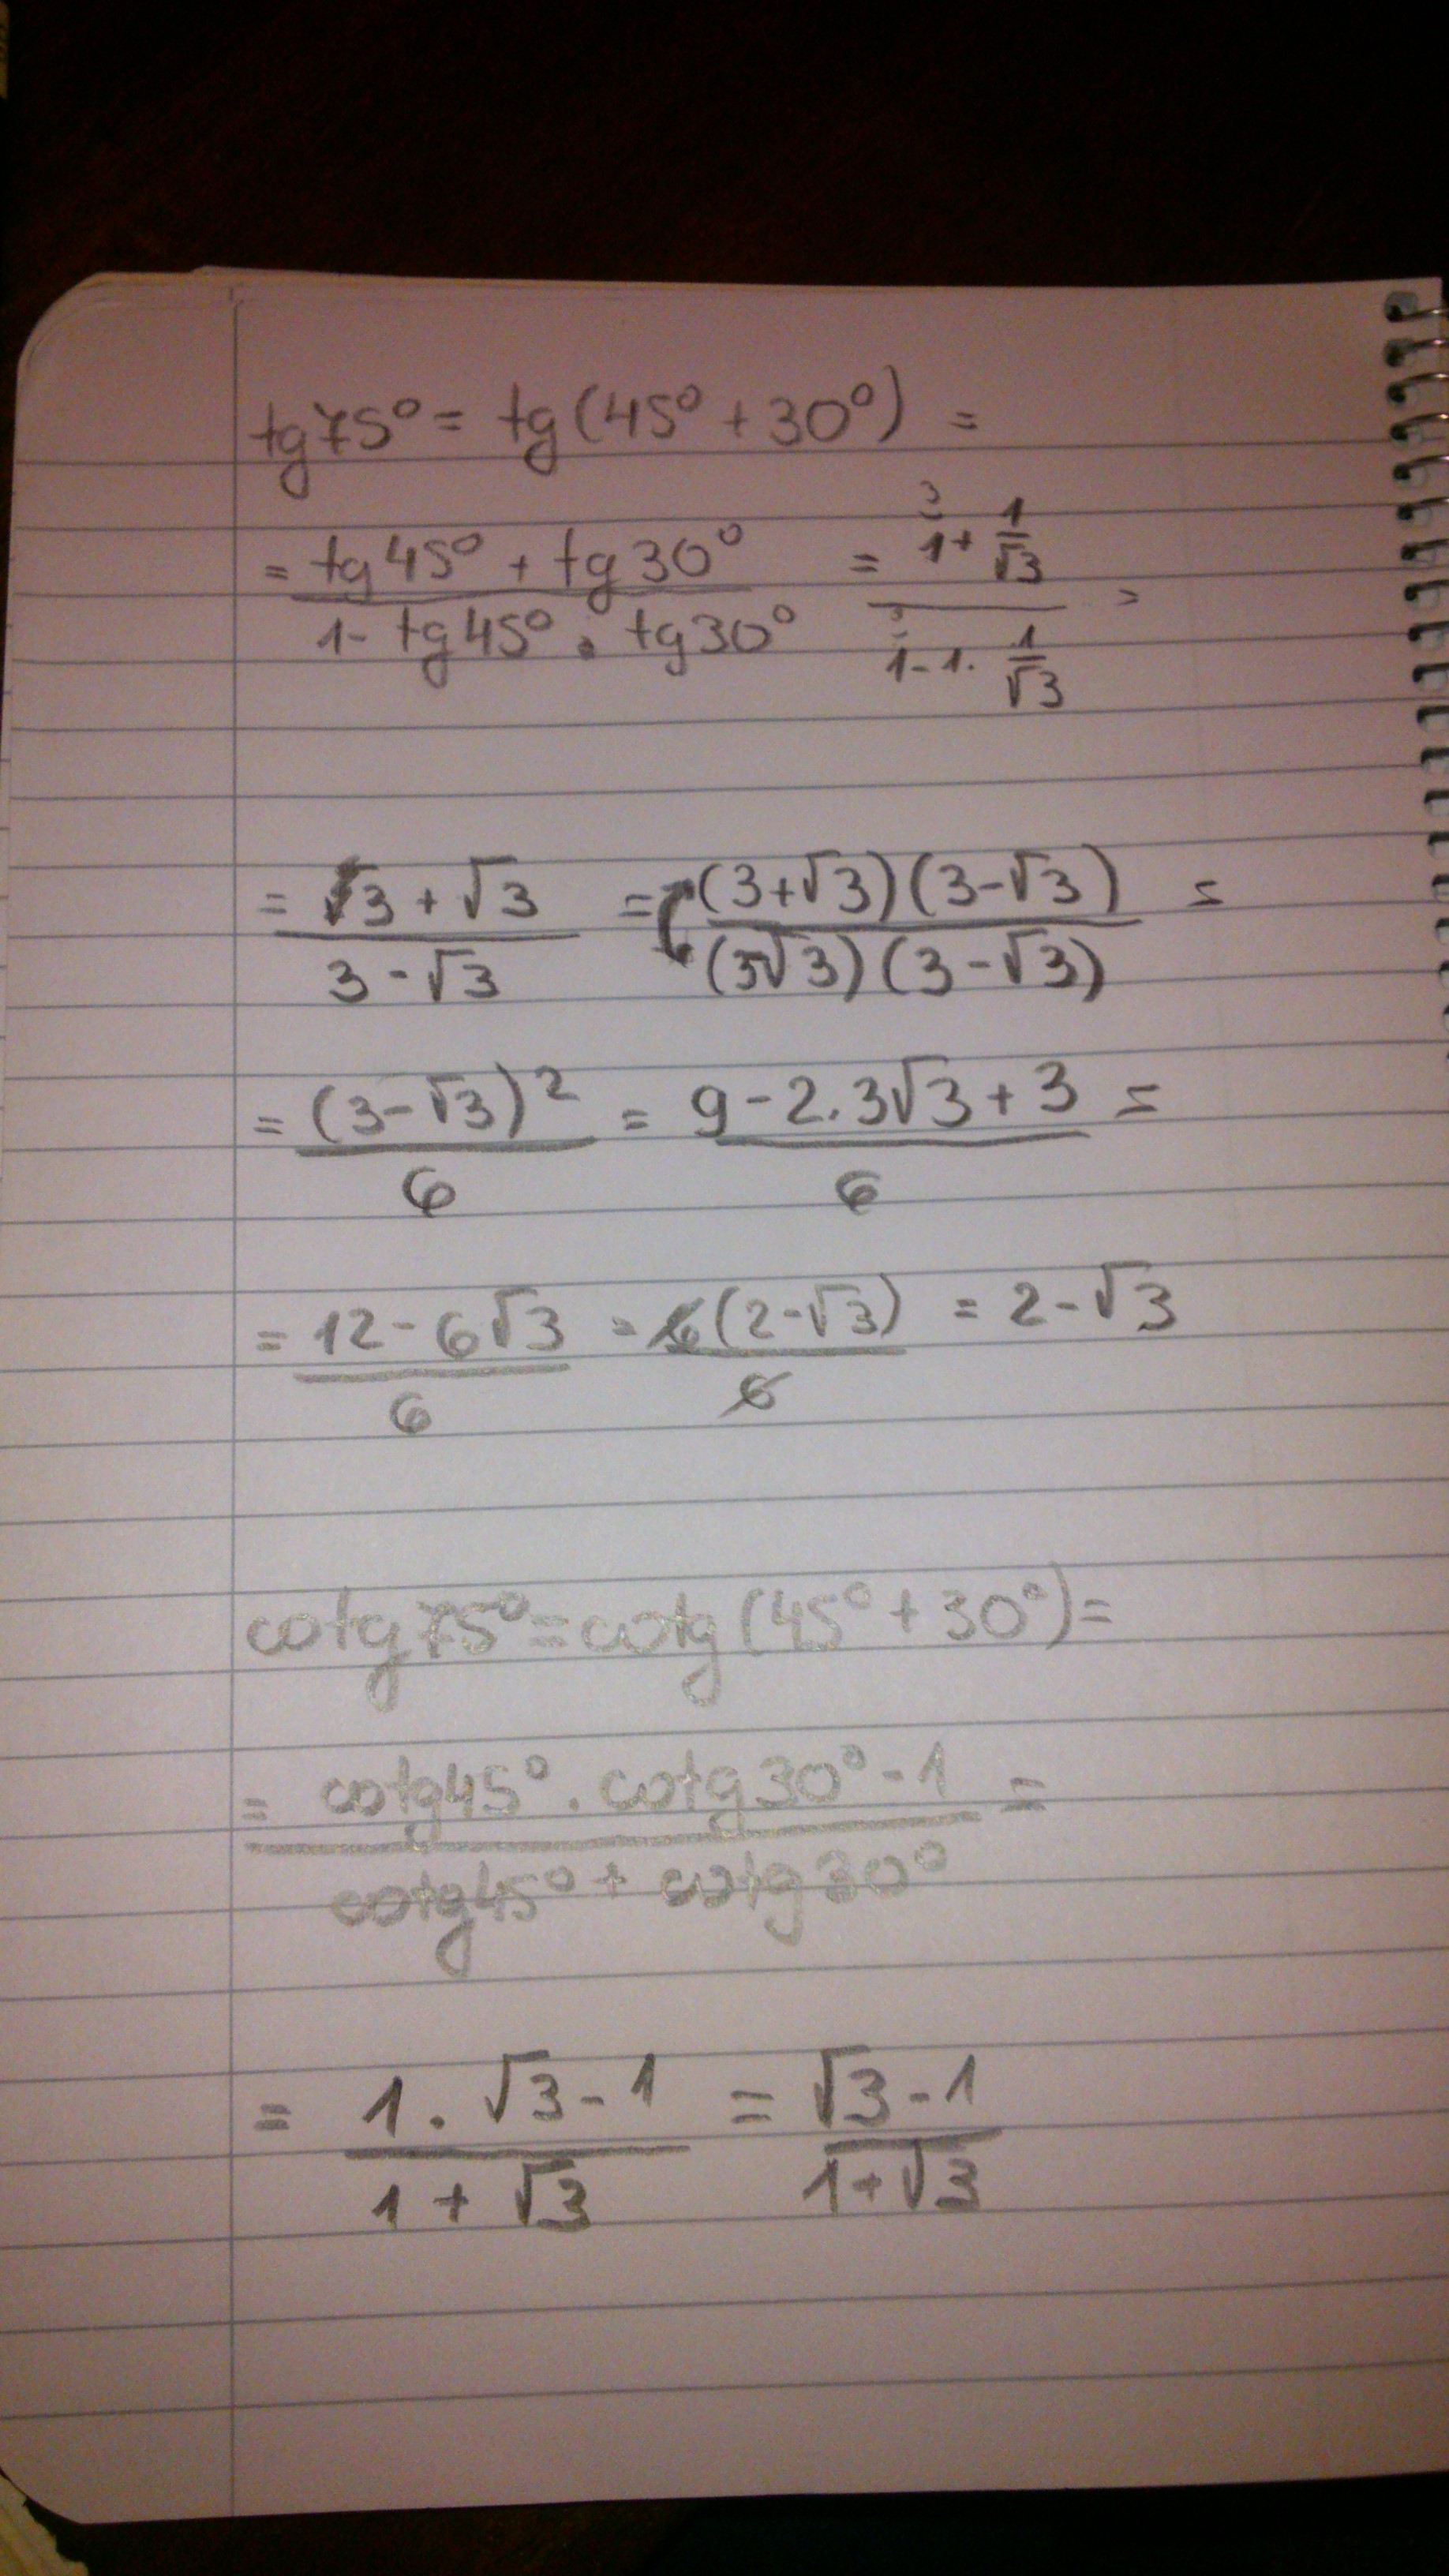 tg75° = tg(45° + 30°) =
= (tg45° + tg30°)/(1 - tg45° . tg30°) = (1 + 1/√3)/(1 - 1 . 1/√3) =
= (3 + √3)/(3 - √3) = ((3+√3)(3-√3))/((3√3)(3-√3)) =
= (3-√3)²/6 = (9 - 2.3√3 + 3)/6 =
= (12 - 6√3)/6 = 6(2-√3)/6 = 2 - √3
cotg75° = cotg(45° + 30°) =
= (cotg45° . cotg30° - 1)/(cotg45° + cotg30°) =
= (1 . √3 - 1)/(1 + √3) = (√3 - 1)/(1 + √3)